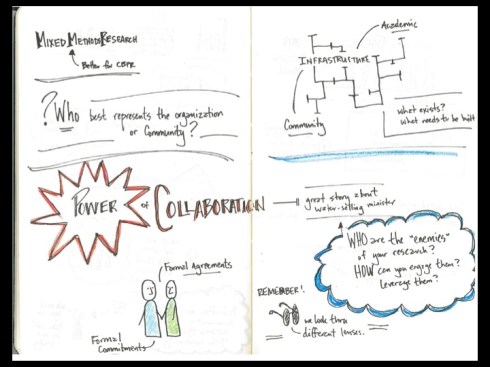 MIXED METHODS RESEARCH
Better for CBPR
? Who best represents the organization
or Community?
POWER of COLLABORATION
Formal Agreements
Formal
Commitments
Academic
INFRASTRUCTURE
Community
what exists?
What needs to be built
great story about
water-selling minister
WHO are the "enemies"
of your research?
HOW can you engage them?
leverage them?
REMEMBER!
we look thru
different lenses.